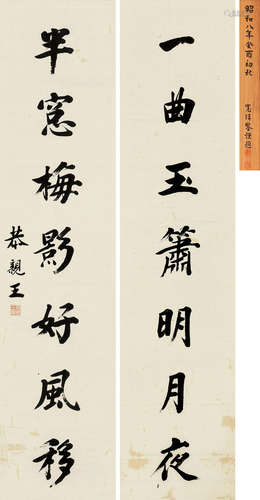 一曲玉簫明月夜
半窓梅影好風移
恭親王
昭和八年癸酉初秋